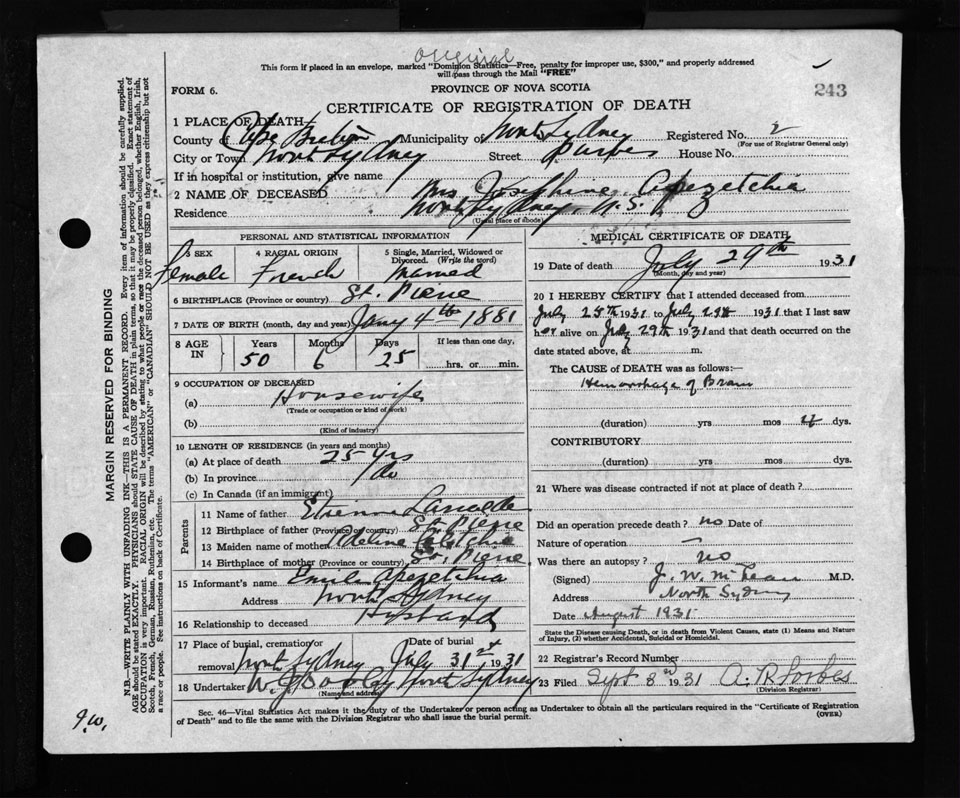 Original
This form if placed in an envelope, marked "Dominion Statistics—Free, penalty for improper use, $300," and properly addressed
will pass through the Mail "FREE"
243
FORM 6.
PROVINCE OF NOVA SCOTIA
CERTIFICATE OF REGISTRATION OF DEATH
1 PLACE OF DEATH
County of Cape Breton Municipality of North Sydney Registered No. 2
(For use of Registrar General only)
City or Town North Sydney Street House No.
If in hospital or institution, give name
2 NAME OF DECEASED Mrs Josephine Apezetchia
Residence North Sydney N.S.
(Usual place of abode)
PERSONAL AND STATISTICAL INFORMATION
3 SEX
Female
4 RACIAL ORIGIN
French
5 Single, Married, Widowed or
Divorced. (Write the word)
Married
6 BIRTHPLACE (Province or country) St. Pierre
7 DATE OF BIRTH (month, day and year) Jany 4th 1881
8 AGE IN
Years Months Days If less than one day,
50 6 25 hrs. or min.
9 OCCUPATION OF DECEASED
(a) Housewife
(Trade or occupation or kind of work)
(b)
(Kind of industry)
10 LENGTH OF RESIDENCE (in years and months)
(a) At place of death 25 yrs
(b) In province do
(c) In Canada (if an immigrant)
Parents
11 Name of father Etienne
12 Birthplace of father (Province or country) St. Pierre
13 Maiden name of mother Adeline
14 Birthplace of mother (Province or country) St. Pierre
15 Informant's name Emile Apezetchia
Address North Sydney
16 Relationship to deceased Husband
17 Place of burial, cremation or Date of burial
removal North Sydney July 31st 1931
18 Undertaker North Sydney
(Name and address)
MEDICAL CERTIFICATE OF DEATH
19 Date of death July 29th 1931
(Month, day and year)
20 I HEREBY CERTIFY that I attended deceased from
July 25th 1931 to July 29th 1931 that I last saw
her alive on July 29th 1931 and that death occurred on
date stated above, at m.
The CAUSE of DEATH was as follows:—
Hemorrhage of Brain
(duration) yrs mos 4 dys.
CONTRIBUTORY
(duration) yrs mos dys.
21 Where was disease contracted if not at place of death?
Did an operation precede death? no Date of
Nature of operation —
Was there an autopsy? no
(Signed) J. W. McLean M.D.
Address North Sydney
Date August 1931
State the Disease causing Death, or in death from Violent Causes, state (1) Means and Nature
of Injury, (2) whether Accidental, Suicidal or Homicidal.
22 Registrar's Record Number
23 Filed Sept 8th 1931 A. R. Forbes
(Division Registrar)
Sec. 46—Vital Statistics Act makes it the duty of the Undertaker or person acting as Undertaker to obtain all the particulars required in the "Certificate of Registration
of Death" and to file the same with the Division Registrar who shall issue the burial permit.
(OVER)
MARGIN RESERVED FOR BINDING
N.B.—WRITE PLAINLY WITH UNFADING INK—THIS IS A PERMANENT RECORD. Every item of information should be carefully supplied.
AGE should be stated EXACTLY. PHYSICIANS should STATE CAUSE OF DEATH in plain terms, so that it may be properly classified. Exact statement of
OCCUPATION is very important. RACIAL ORIGIN will be described by stating to what people or race the deceased person belonged, whether English, Irish,
Scotch, French, German, Russian, Ruthenian, etc. The terms "AMERICAN" or "CANADIAN" SHOULD NOT BE USED as they express citizenship but not
a race or people. See instructions on back of Certificate.